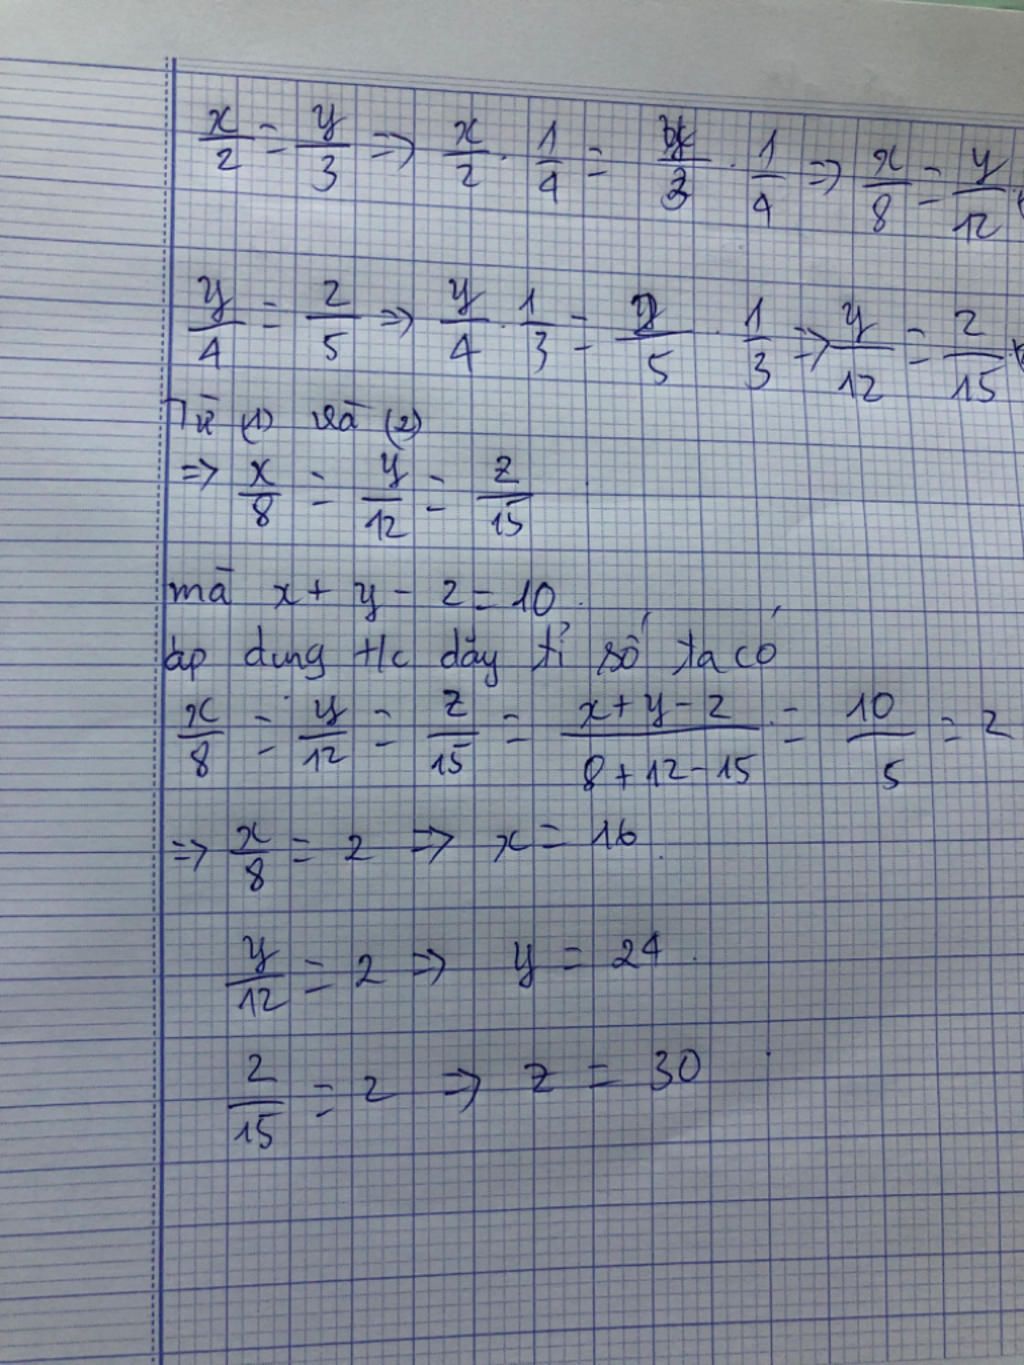 x/2 = y/3 => x/2 . 1/4 = y/3 . 1/4 => x/8 = y/12
y/4 = z/5 => y/4 . 1/3 = z/5 . 1/3 => y/12 = z/15
Từ (1) và (2)
=> x/8 = y/12 = z/15
mà x + y - z = 10.
áp dụng t/c dãy tỉ số ta có
x/8 = y/12 = z/15 = (x + y - z)/(8 + 12 - 15) = 10/5 = 2
=> x/8 = 2 => x = 16.
y/12 = 2 => y = 24.
z/15 = 2 => z = 30